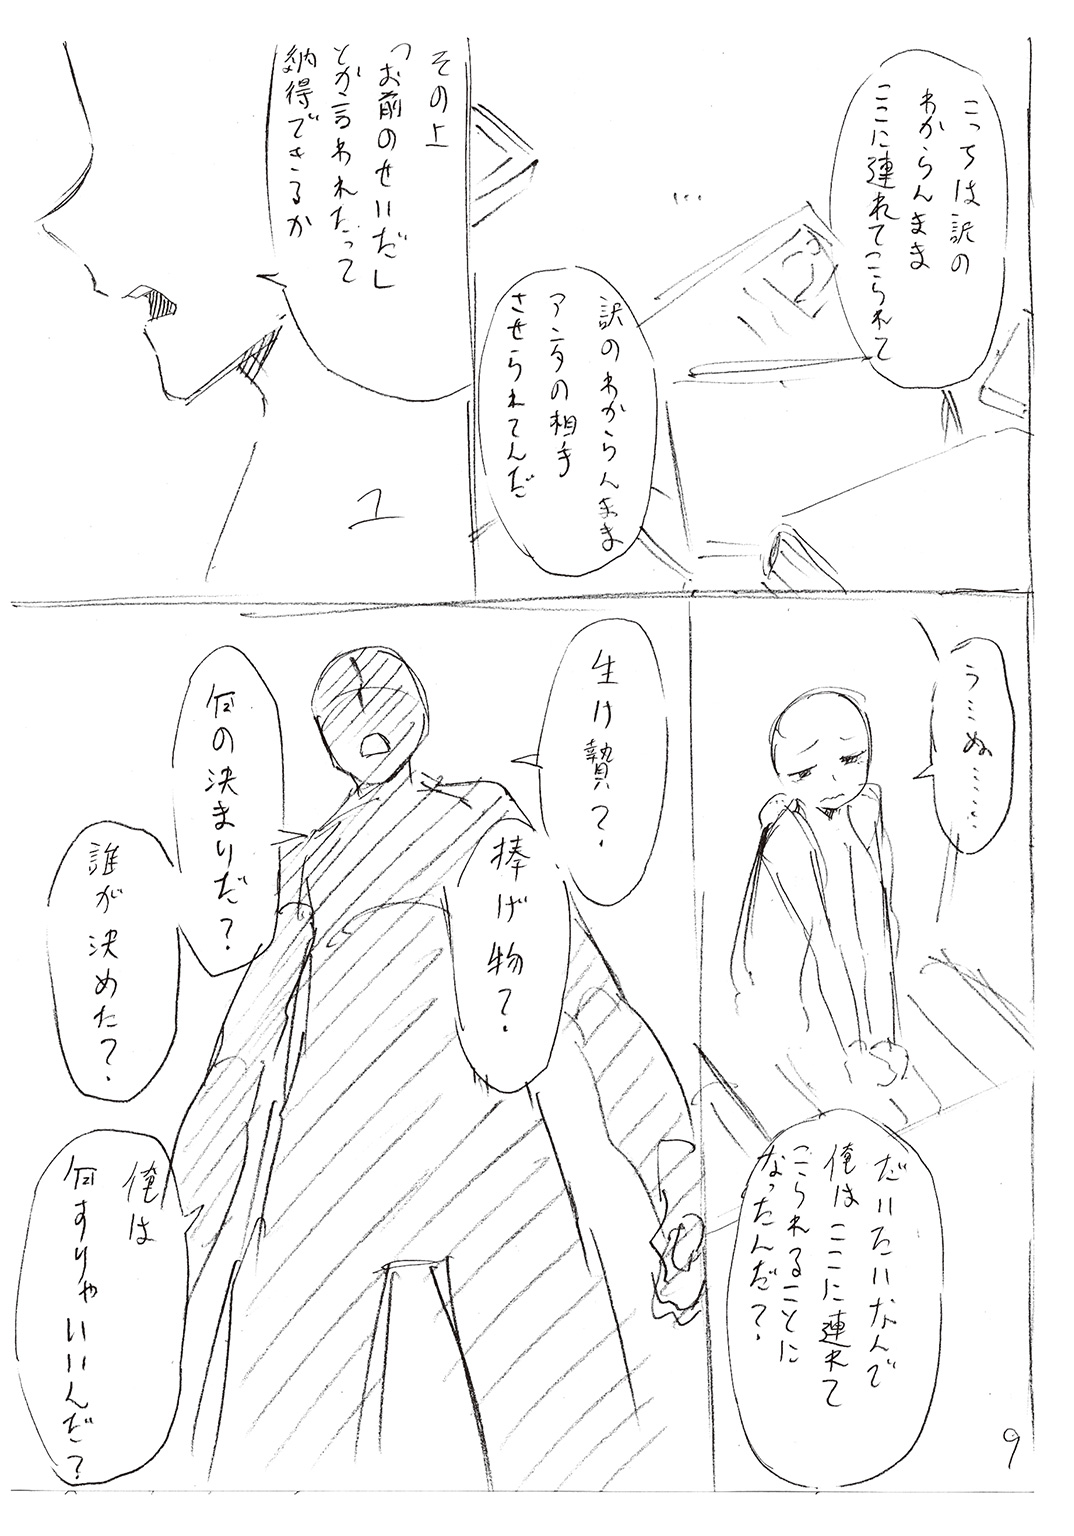 こっちは訳の
わからんまま
ここに連れてこられて
…
訳のわからんまま
アンタの相手
させられてんだ
その上
「お前のせいだ」
とか言われたって
納得できるか
う…ぬ……
だいたいなんで
俺はここに連れて
こられることに
なったんだ？
生け贄？
捧げ物？
何の決まりだ？
誰が決めた？
俺は
何すりゃいいんだ？
9